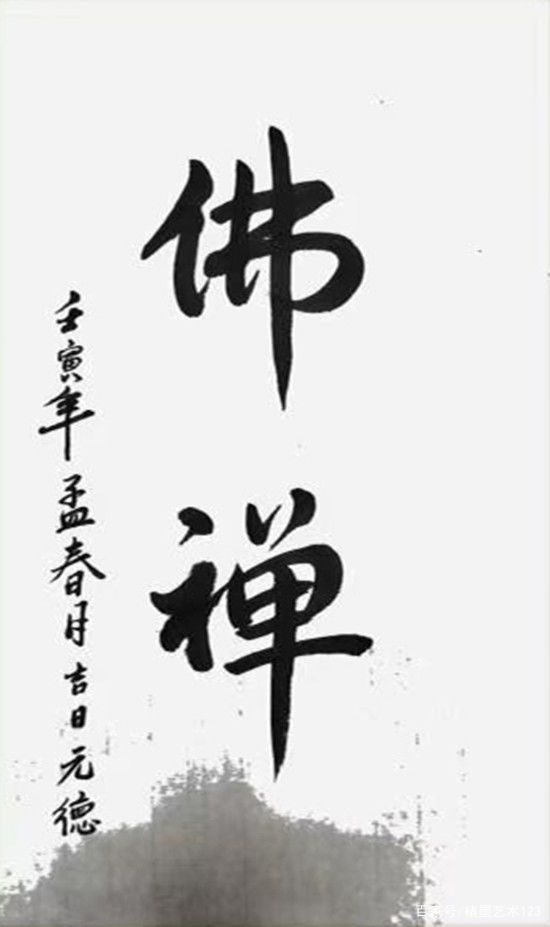 佛禅
壬寅年孟春月吉日元德
百家号/靖墨艺术123